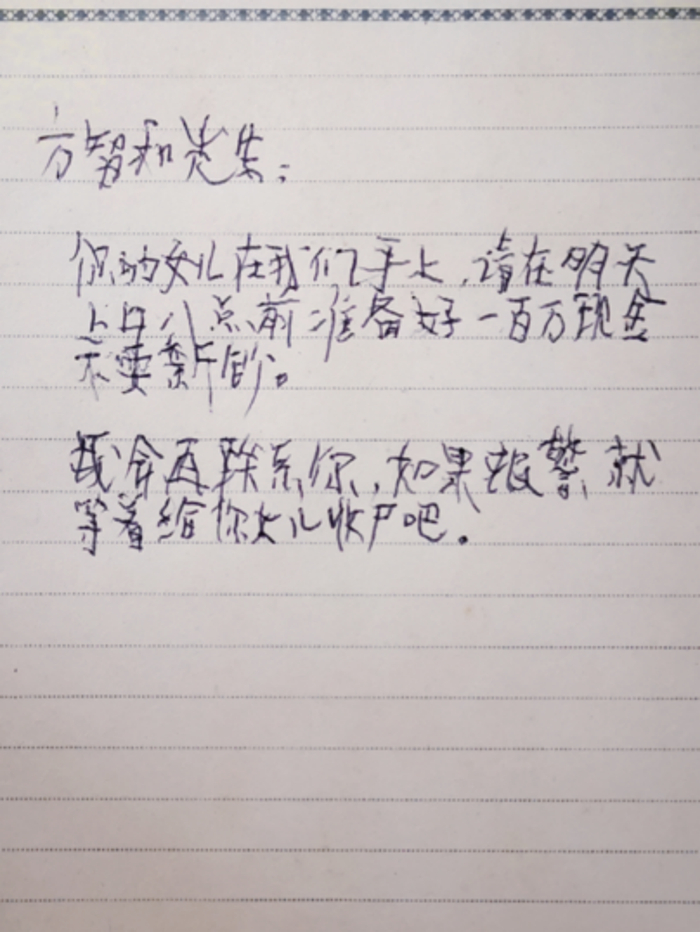 方智和先生:
你的女儿在我们手上,请在明天
上午八点前准备好一百万现金
不要新钞。
我会再联系你,如果报警就
等着给你女儿收尸吧.